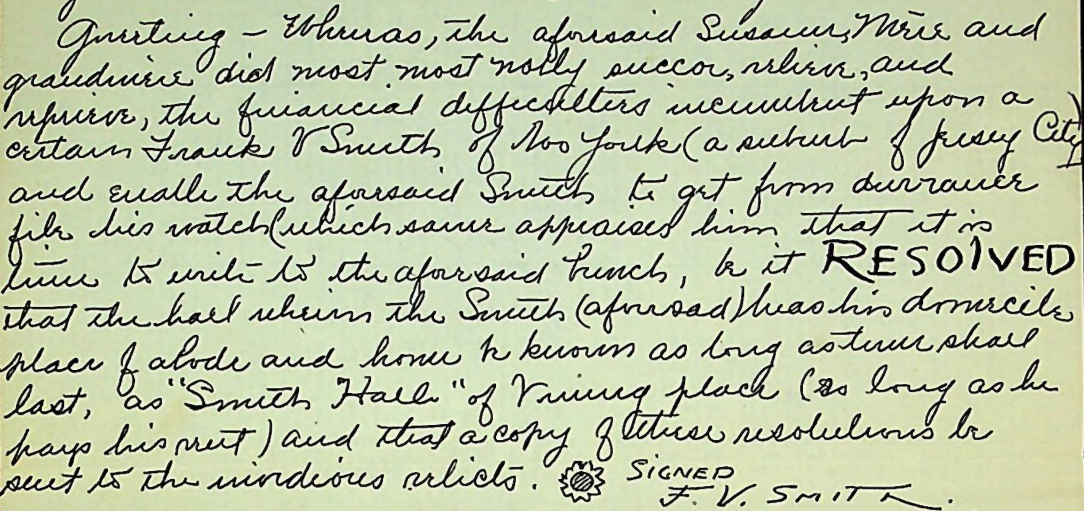 Greeting – Whereas, the aforesaid Susann, Mère and
grandmère did most most nobly succor, relieve, and
reprieve, the financial difficulters incumbent upon a
certain Frank V Smith of Noo Yoilk (a suburb of Jersey City)
and enable the aforsaid Smith to get from durrance
file his watch (which same appraises him that it is
time to write to the aforesaid bunch, be it RESOLVED
that the hall wherein the Smith (aforesad) has his domecile
place of abode and home be known as long as time shall
last, as "Smith Hall" of Vining place (so long as he
pays his rent) and that a copy of these resolutions be
sent to the relicts.
SIGNED
F. V. SMITH.